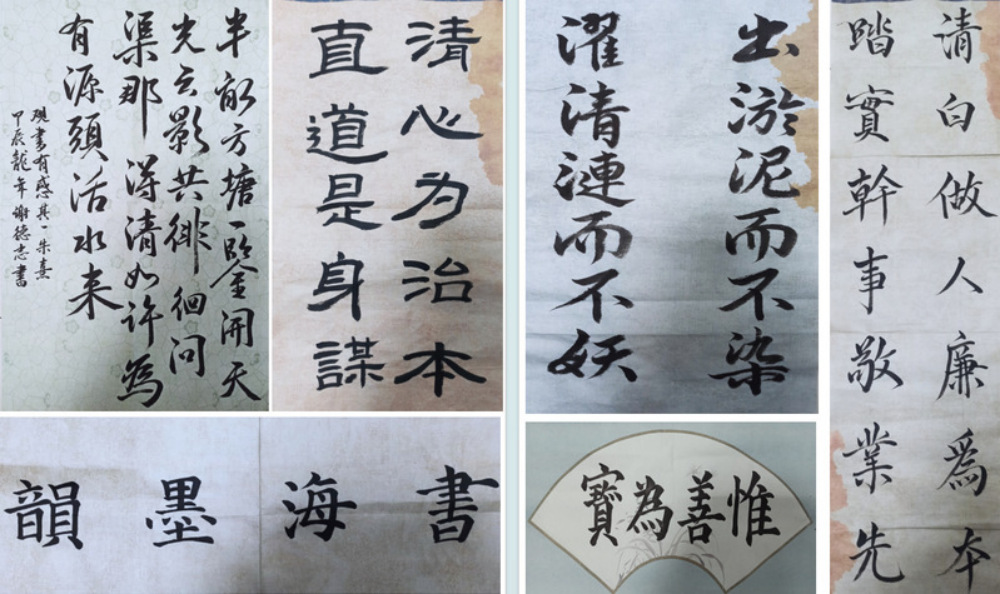 半畝方塘一鑒開天
光云影共徘徊问
渠那得清如许為
有源頭活水来
觀書有感其一朱熹
甲辰龍年謝德志書
清心为治本
直道是身謀
出淤泥而不染
濯清漣而不妖
清白做人廉爲本
踏實幹事敬業先
書海墨韻
惟善為寶